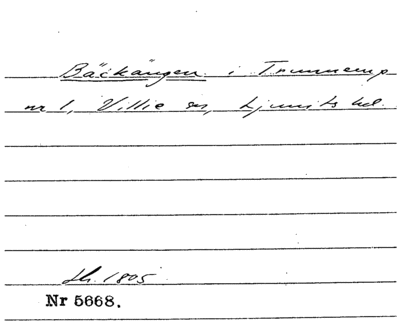 Bäckängen i Trunnerup
nr 1, Villie sn, Ljunits hd.
sh. 1805
Nr 5668.